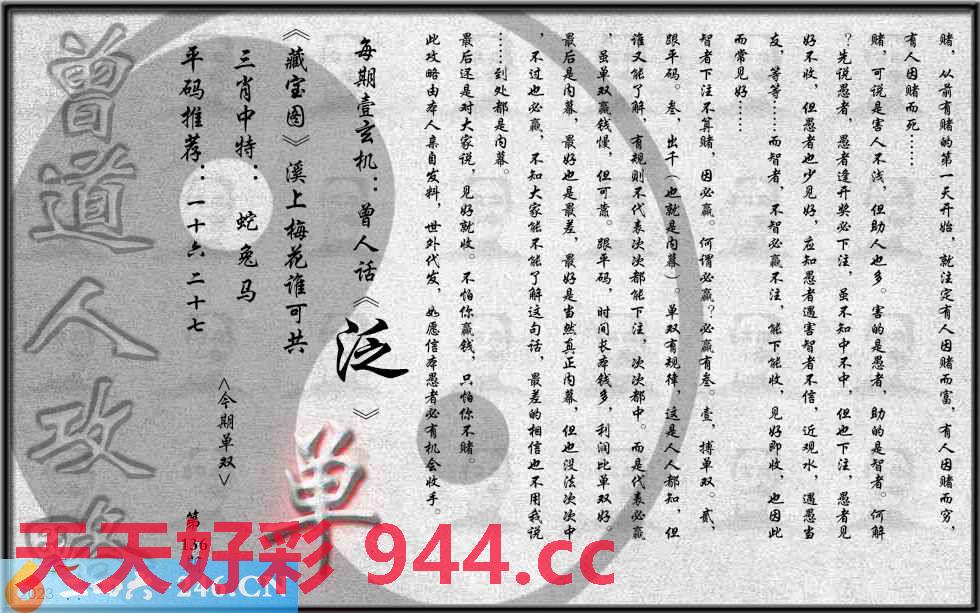 赌，从前有赌的第一天开始，就注定有人因赌而富，有人因赌而穷，
有人因赌而死……
赌，可说是害人不浅，但助人也多。害的是愚者，助的是智者。何解
？先说愚者，愚者逢开奖必下注，虽不知中不中，但也下注，愚者见
好不收，但愚者也少见好，应知愚者遇害智者不信，近观水，遇愚当
友，等等……而智者，不智必赢不注，能下能收，见好即收，也因此
而常见好……
智者下注不算赌，因必赢。何谓必赢？必赢有叁。壹，搏单双。贰，
跟平码。叁，出千（也就是内幕）。单双有规律，这是人人都知，但
谁又能了解，有规则不代表次次都能下注，次次都中。而是代表必赢
，虽单双赢钱慢，但可蓄。跟平码，时间长本钱多，利润比单双好。
最后是内幕，最好也是最差，最好是当然真正内幕，但也没法次次中
，不过也必赢，不知大家能不能了解这句话，最差的相信也不用我说
……到处都是内幕。
最后还是对大家说，见好就收。不怕你赢钱，只怕你不赌。
此攻略由本人亲自发料，世外代发，如愿信本愚者必有机会收手。
每期壹玄机：曾人话《泛》
《藏宝图》溪上梅花谁可共
三肖中特：蛇兔马
平码推荐：一十六二十七
<今期单双>
单
第
136
曾道人攻略
天天好彩 944.cc
246.CN
2023